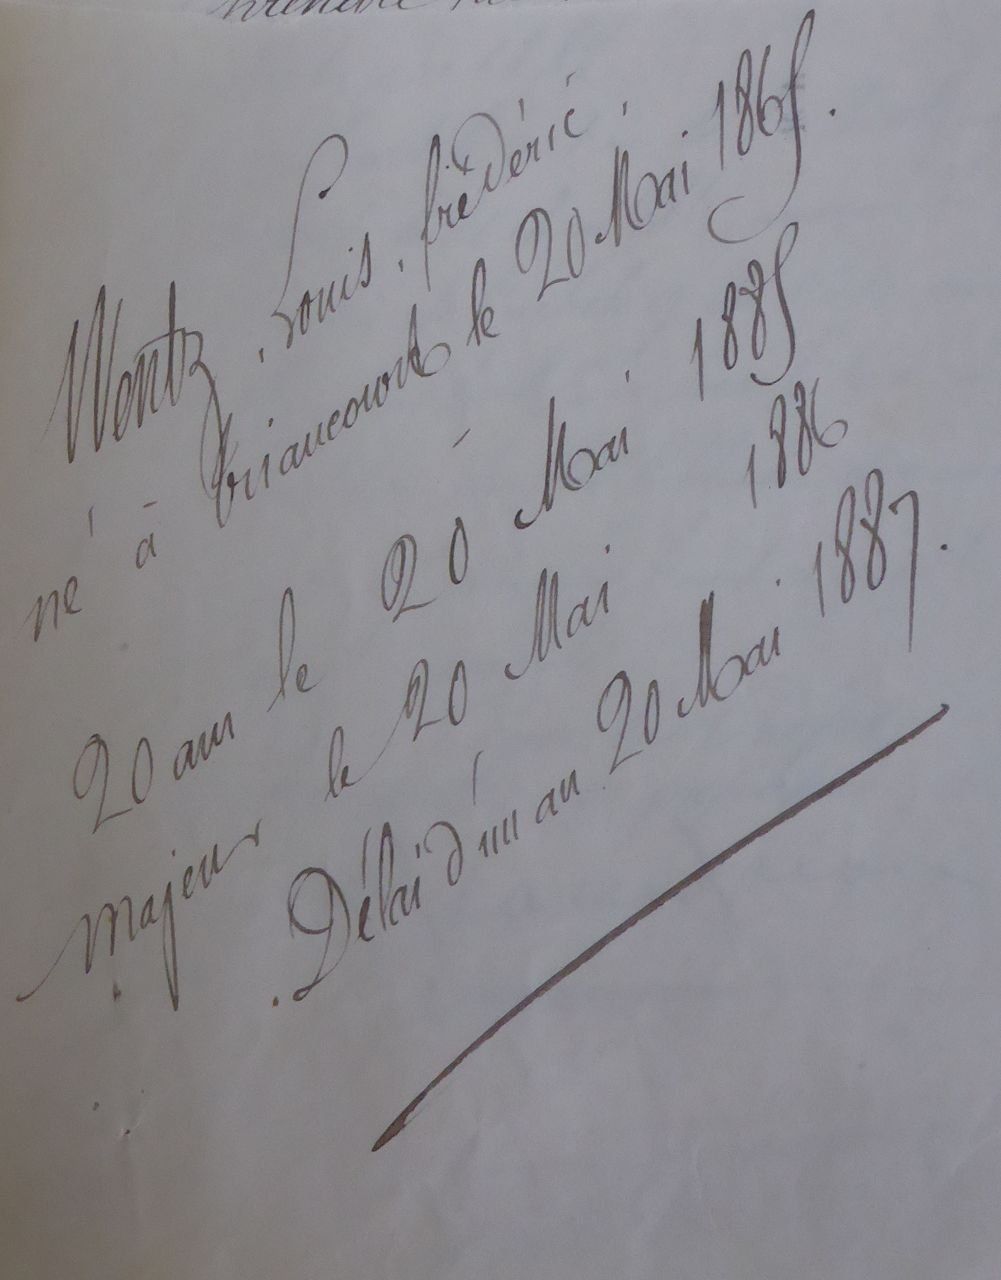 Wentz, Louis, frédéric,
né à briaucourt le 20 Mai 1865.
20 ans le 20 Mai 1885
majeur le 20 Mai 1886
Délai d'un an 20 Mai 1887.